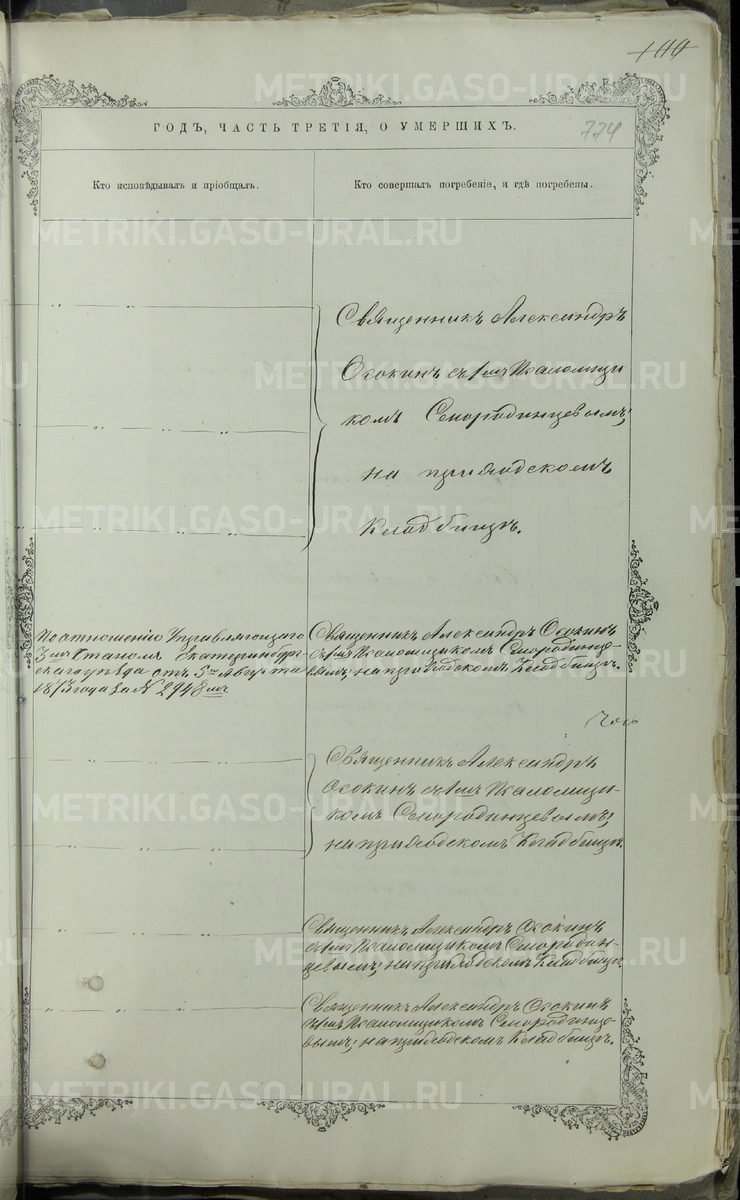 100
774
ГОДЪ, ЧАСТЬ ТРЕТІЯ, О УМЕРШИХЪ.
Кто исповѣдывалъ и пріобщалъ.
Кто совершалъ погребеніе, и гдѣ погребены.
Священникъ Александръ
Осокинъ съ 1мъ Псаломщи
комъ Смородинцевымъ,
на приходскомъ
Кладбищѣ.
По отношенію Управляющаго
3мъ Станомъ Екатеринбург-
скаго уѣзда отъ 5го Августа
1873 года за N 2948мъ
Священникъ Александръ Осокинъ
съ 1мъ Псаломщикомъ Смородинце-
вымъ, на приходскомъ Кладбищѣ.
Священникъ Александръ
Осокинъ съ 1мъ Псаломщи-
комъ Смородинцевымъ,
на приходскомъ Кладбищѣ.
Священникъ Александръ Осокинъ
съ 1мъ Псаломщикомъ Смородин-
цевымъ, на приходскомъ Кладбищѣ.
Священникъ Александръ Осокинъ
съ 1мъ Псаломщикомъ Смородинце-
вымъ, на приходскомъ Кладбищѣ.
METRIKI.GASO-URAL.RU